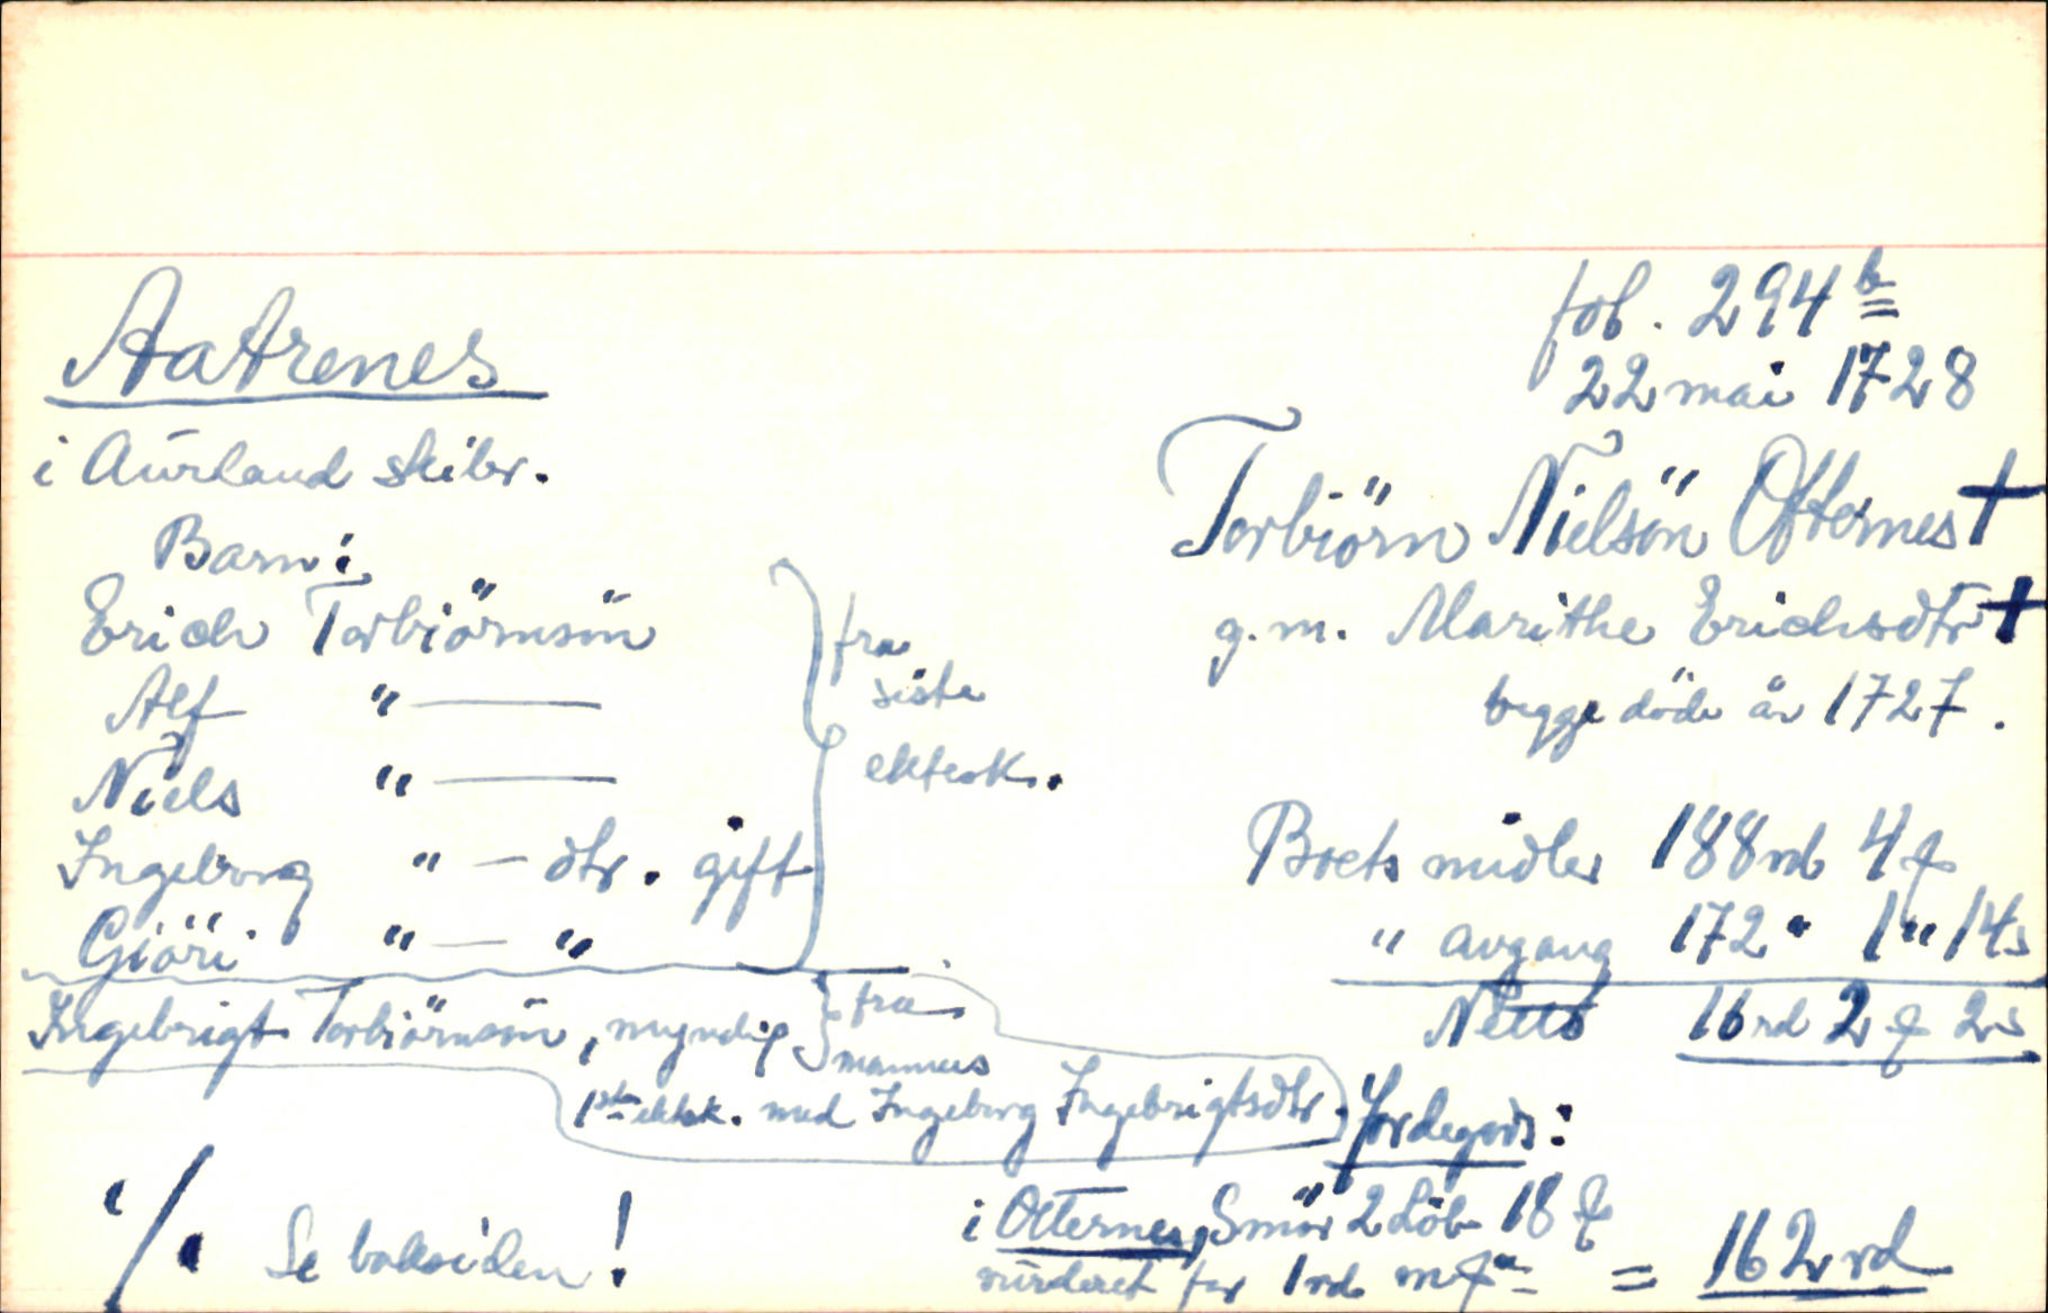 Aatrenes
i Aurland skibr.
fol. 294 b
22 mai 1728
Torbiörn Nielsön Otternes †
g. m. Marithe Erichsdtr †
begge döde år 1727.
Barn:
Erich Torbiörnsön
Alf " —
Niels " —
Ingeborg " — dtr. gift
Gjöri " — "
fra
siste
ektesk.
Ingebrigt Torbiörnsön, myndig
fra
mannens
1ste ektsk. med Ingeborg Ingebrigtsdtr.
Boets midler 188 rd 4
" avgang 172 " 1 " 14 s
Netto 16 rd 2 2 s
Jordegods:
i Otternes, Smör 2 Löb 18
vurderet for 1 rd = 162 rd
·/. Se baksiden!